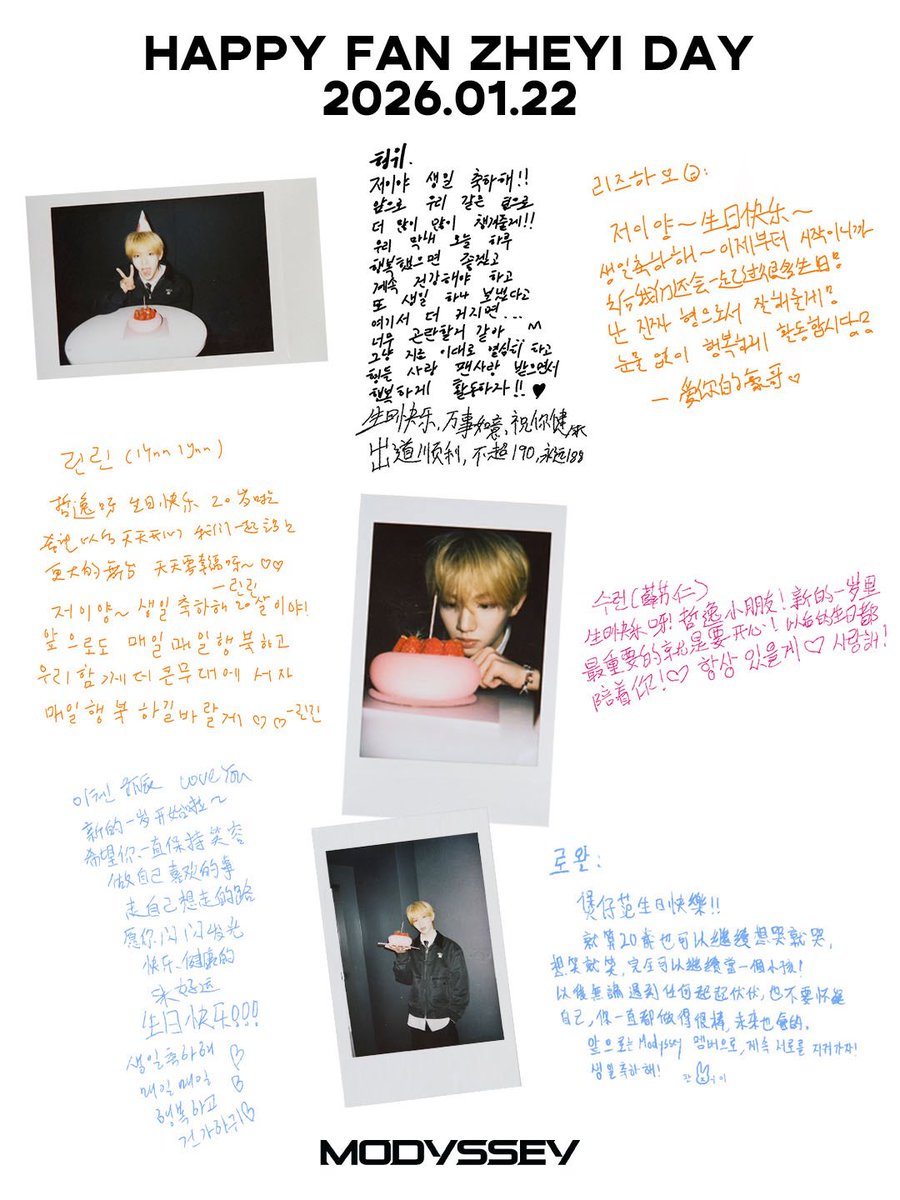 HAPPY FAN ZHEYI DAY
2026.01.22
헝위.
저이야 생일 축하해!!
앞으로 우리 같은 팀으로
더 많이 많이 챙겨줄게!!
우리 막내 오늘 하루
행복했으면 좋겠고
계속 건강해야 하고
또 생일 하나 보냈다고
여기서 더 커지면...
너무 곤란할거 같아 ^^
그냥 지금 이대로 열심히 하고
형들 사랑 팬사랑 받으면서
행복하게 활동하자!! ♥
生日快乐, 万事如意, 祝你健康
出道顺利, 不超190, 永远188
리즈하오:
저이양~生日快乐~
생일축하해~이제부터 시작이니까
我们还会一起过很多生日
난 진짜 형으로서 잘해줄게
눈물 없이 행복하게 활동합시다
— 爱你的豪哥♡
린린 (lynn lynn)
哲逸呀 生日快乐 20岁啦
天天开心 我们一起
更大的舞台 天天要幸福呀~♡♡
-린린
저이양~ 생일축하해 20살이야!
앞으로도 매일매일행복하고
우리함께더큰무대에 서자
매일행복 하길바랄게 ♡♡-린린
수런(蘇芳仁)
生日快乐呀! 哲逸小朋友! 新的一岁里
最重要的就是要开心! 以后的生日都
陪着你!♡ 항상 있을게♡ 사랑해!
이첸 Love You
新的一岁开始啦~
希望你一直保持笑容
做自己喜欢的事
走自己想走的路
愿你闪闪发光
快乐、健康的
好运
生日快乐!!!
생일축하해 ♡
매일매일
행복하고
건강하귀♡
로완:
煲仔范生日快樂!!
就算20歲也可以繼續想哭就哭,
想笑就笑, 完全可以繼續當一個小孩!
以後無論遇到任何起起伏伏, 也不要怀疑
自己, 你一直都做得很棒, 未來也會的.
앞으로는 Modyssey 멤버으로, 계속 서로를 지켜가자!
생일축하해!
MODYSSEY